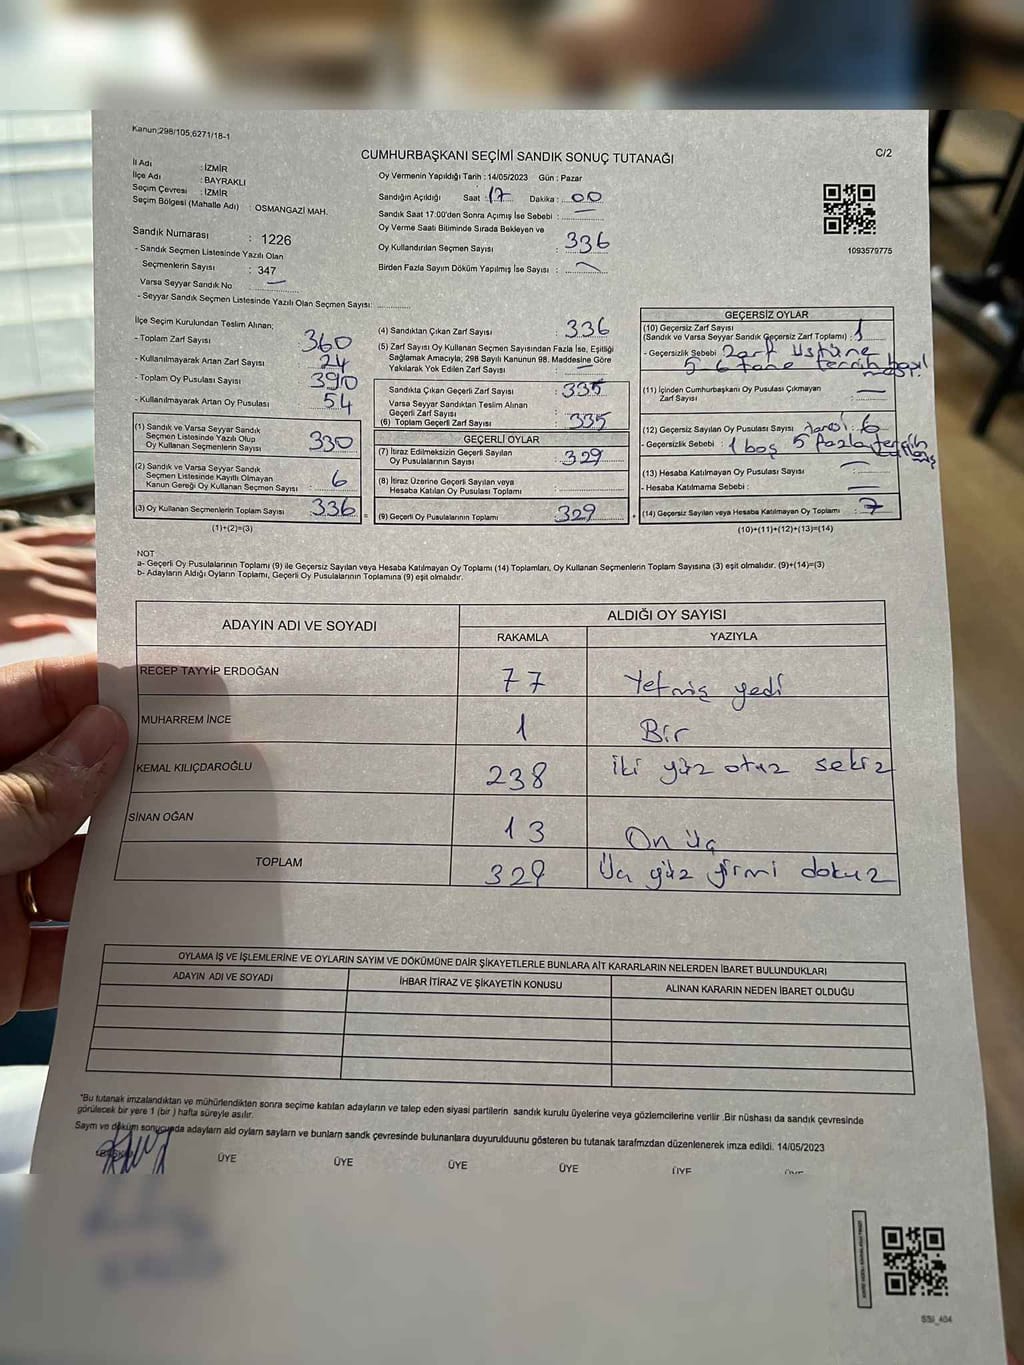 Kanun;298/105,6271/18-1
CUMHURBAŞKANI SEÇİMİ SANDIK SONUÇ TUTANAĞI
C/2
İl Adı : İZMİR
İlçe Adı : BAYRAKLI
Seçim Çevresi : İZMİR
Seçim Bölgesi (Mahalle Adı) : OSMANGAZİ MAH.
Sandık Numarası : 1226
- Sandık Seçmen Listesinde Yazılı Olan
Seçmenlerin Sayısı : 347
Varsa Seyyar Sandık No
- Seyyar Sandık Seçmen Listesinde Yazılı Olan Seçmen Sayısı: ............
Oy Vermenin Yapıldığı Tarih : 14/05/2023 Gün : Pazar
Sandığın Açıldığı Saat : 17 Dakika : 00
Sandık Saat 17:00'den Sonra Açımış İse Sebebi :
Oy Verme Saati Bitiminde Sırada Bekleyen ve
Oy Kullandırılan Seçmen Sayısı 336
Birden Fazla Sayım Döküm Yapılmış İse Sayısı :
1093579775
İlçe Seçim Kurulundan Teslim Alınan;
- Toplam Zarf Sayısı 360
- Kullanılmayarak Artan Zarf Sayısı 24
- Toplam Oy Pusulası Sayısı 390
- Kullanılmayarak Artan Oy Pusulası 54
(1) Sandık ve Varsa Seyyar Sandık
Seçmen Listesinde Yazılı Olup
Oy Kullanan Seçmenlerin Sayısı 330
(2) Sandık ve Varsa Seyyar Sandık
Seçmen Listesinde Kayıtlı Olmayan
Kanun Gereği Oy Kullanan Seçmen Sayısı : 6
(3) Oy Kullanan Seçmenlerin Toplam Sayısı 336
(1)+(2)=(3)
(4) Sandıktan Çıkan Zarf Sayısı : 336
(5) Zarf Sayısı Oy Kullanan Seçmen Sayısından Fazla İse, Eşitliği
Sağlamak Amacıyla, 298 Sayılı Kanunun 98. Maddesine Göre
Yakılarak Yok Edilen Zarf Sayısı :
Sandıkta Çıkan Geçerli Zarf Sayısı : 335
Varsa Seyyar Sandıktan Teslim Alınan
Geçerli Zarf Sayısı
(6) Toplam Geçerli Zarf Sayısı : 335
GEÇERLİ OYLAR
(7) İtiraz Edilmeksizin Geçerli Sayılan
Oy Pusulalarının Sayısı : 329
(8) İtiraz Üzerine Geçerli Sayılan veya
Hesaba Katılan Oy Pusulası Toplamı
(9) Geçerli Oy Pusulalarının Toplamı 329
GEÇERSİZ OYLAR
(10) Geçersiz Zarf Sayısı
(Sandık ve Varsa Seyyar Sandık Geçersiz Zarf Toplamı) : 1
- Geçersizlik Sebebi : Zarf üstüne
5-6 tane tercih
(11) İçinden Cumhurbaşkanı Oy Pusulası Çıkmayan
Zarf Sayısı
(12) Geçersiz Sayılan Oy Pusulası Sayısı 6
- Geçersizlik Sebebi : 1 boş 5 fazla tercih
(13) Hesaba Katılmayan Oy Pusulası Sayısı
- Hesaba Katılmama Sebebi :
(14) Geçersiz Sayılan veya Hesaba Katılmayan Oy Toplamı : 7
(10)+(11)+(12)+(13)=(14)
NOT
a- Geçerli Oy Pusulalarının Toplamı (9) ile Geçersiz Sayılan veya Hesaba Katılmayan Oy Toplamı (14) Toplamları, Oy Kullanan Seçmenlerin Toplam Sayısına (3) eşit olmalıdır. (9)+(14)=(3)
b- Adayların Aldığı Oyların Toplamı, Geçerli Oy Pusulalarının Toplamına (9) eşit olmalıdır.
ADAYIN ADI VE SOYADI
ALDIĞI OY SAYISI
RAKAMLA YAZIYLA
RECEP TAYYİP ERDOĞAN 77 Yetmiş yedi
MUHARREM İNCE 1 Bir
KEMAL KILIÇDAROĞLU 238 iki yüz otuz sekiz
SİNAN OĞAN 13 On üç
TOPLAM 329 Üç yüz yirmi dokuz
OYLAMA İŞ VE İŞLEMLERİNE VE OYLARIN SAYIM VE DÖKÜMÜNE DAİR ŞİKAYETLERLE BUNLARA AİT KARARLARIN NELERDEN İBARET BULUNDUKLARI
ADAYIN ADI VE SOYADI İHBAR İTİRAZ VE ŞİKAYETİN KONUSU ALINAN KARARIN NEDEN İBARET OLDUĞU
*Bu tutanak imzalandıktan ve mühürlendikten sonra seçime katılan adayların ve talep eden siyasi partilerin sandık kurulu üyelerine veya gözlemcilerine verilir .Bir nüshası da sandık çevresinde
görülecek bir yere 1 (bir ) hafta süreyle asılır.
Sayım ve döküm sonucunda adayların ald oyların sayların ve bunların sandk çevresinde bulunanlara duyurulduunu gösteren bu tutanak tarafmzdan düzenlenerek imza edildi. 14/05/2023
ÜYE ÜYE ÜYE ÜYE ÜYE
SSI_404